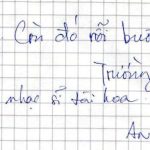 Còn đó nỗi buồ
Trương
nhạc sĩ tài hoa
AN